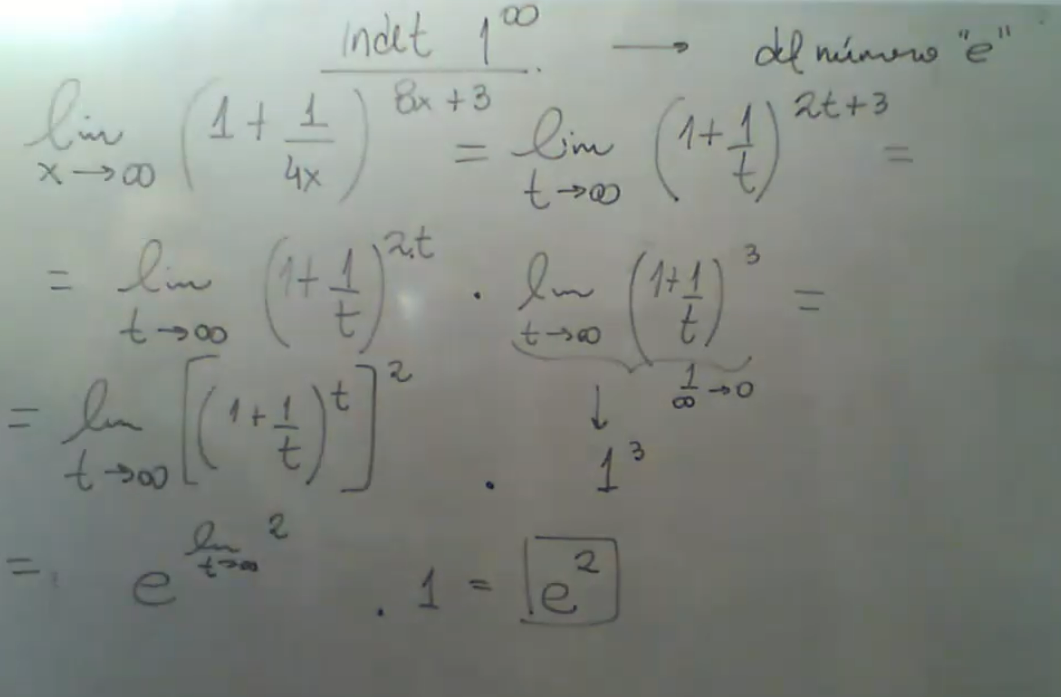 indet 1^∞ → del número "e"
lim x→∞ (1 + 1/4x)^8x+3 = lim t→∞ (1+1/t)^2t+3 =
= lim t→∞ (1+1/t)^2.t · lim t→∞ (1+1/t)^3 =
1/∞ →0
= lim t→∞ [(1+1/t)^t]^2 . ↓ 1^3
= e^lim t→∞ 2 . 1 = e^2